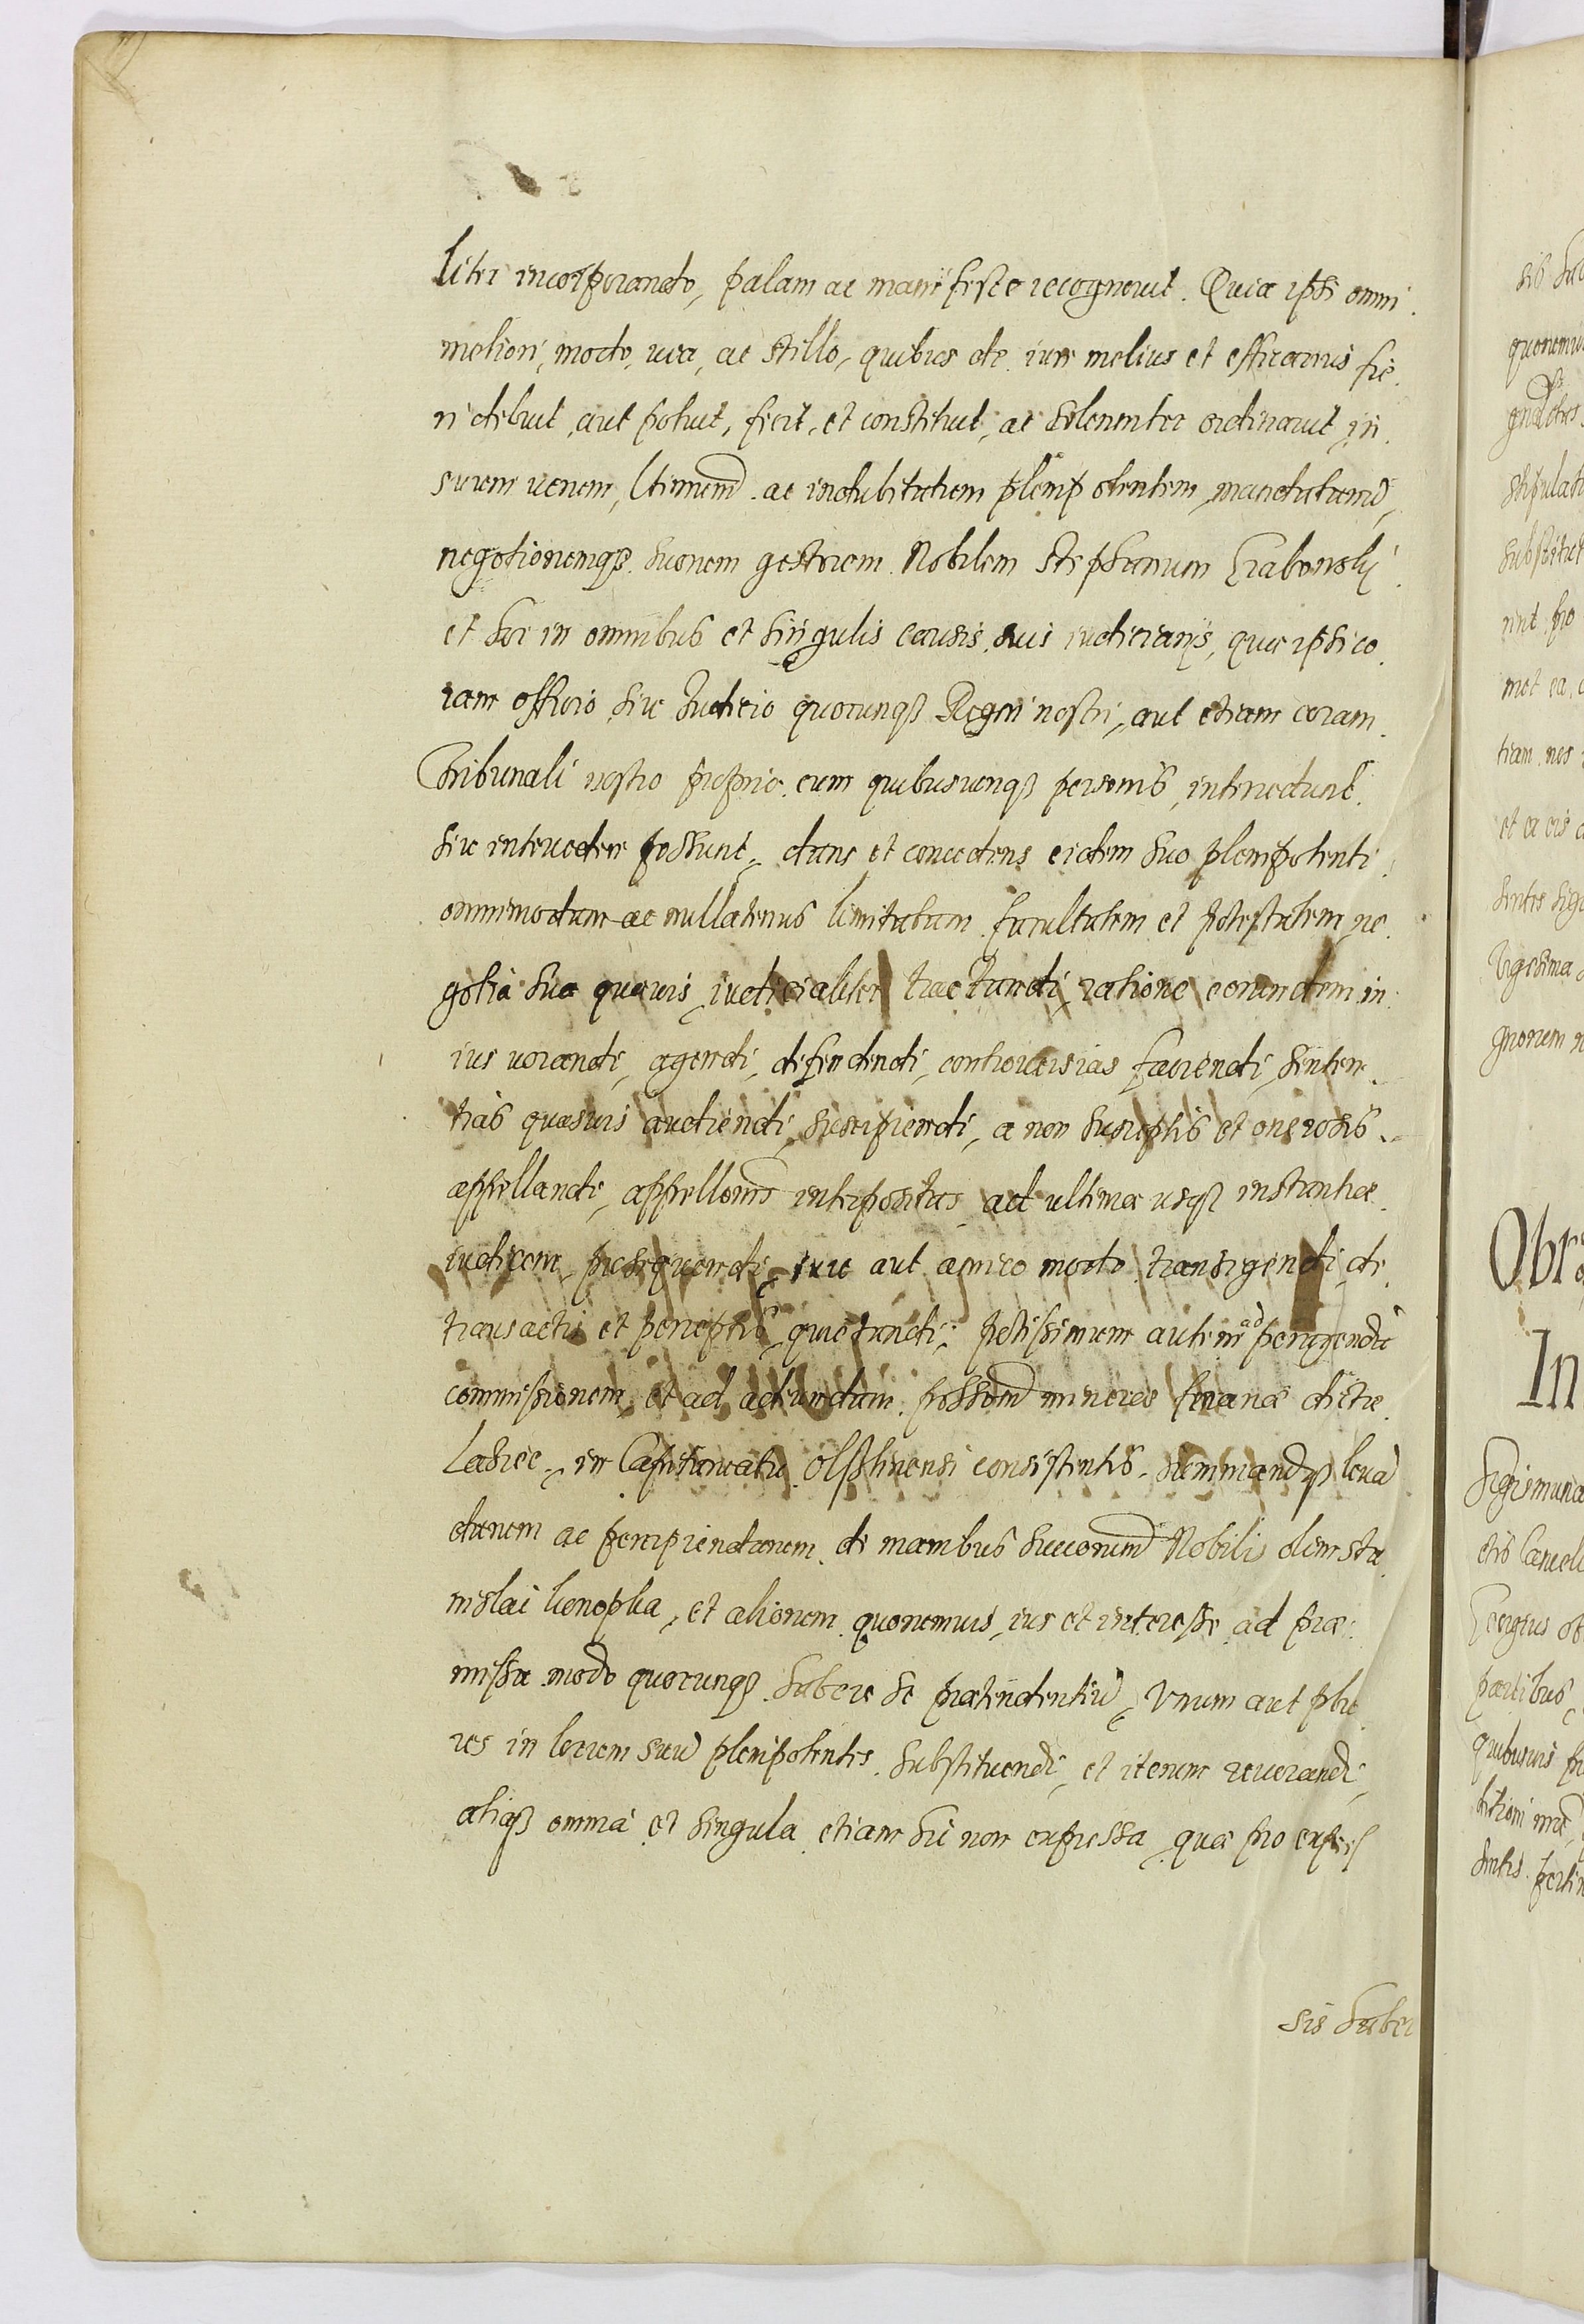 liter incorporando, palam ac manifeste recognovit. Quia ipsi omni
meliori, modo, via, ac stillo, quibus de iure melius et efficacius fie
ri debuit, aut potuit, fecit, et constituit, ac solenniter ordinavit, in
suum verum, ltimum ac indubitatum plenipotentem, mandatarium,
negotiorumqȝ suorum gestorem Nobilem Stephanum Grabowsky
et hoc in omnibus et singulis causis suis iudiciarijs, quæ ipsi co
ram officio sive Iudicio quocunqȝ Regni nostri, aut etiam coram
Tribunali nostro proprio, cum quibuscunqȝ personis, intercedunt
sive intercedere possunt, dans et concedens eidem suo plenipotenti
omnimodam ac nullatenus limitatam facultatem et potestatem, ne
gotia sua quævis iudicialiter tractandi, ratione eorundem in
ius vocandi, agendi, defendendi, controversias faciendi, senten
tias quasvis audiendi, suscipiendi, a non susceptis et onerosis
appellandi, appellones interpositas ad ultimæ usqȝ instantiæ
iudicem, prosequendi, iure aut amico modo transigendi, de
transactis et perceptis quietandi, potissimum autem ad peragendã
commissionem, et ad adeundam possionem mineræ ferrariæ dictæ
Lasiec, in Capitaneatu Olsztinensi consistentis, summamqȝ leva
dam ac percipiendam de manibus succorum Nobilis olim Sta
nislai Konopka, et aliorum quorumvis, ius et interesse ad præ
missa modo quocunqȝ habere se prætendentiũ, Unum aut plu
res in locum suũ plenipotentes substituendi, et iterum revocandi,
aliaqȝ omnia et singula, etiam hic non expressa, quæ pro expres
sis haber